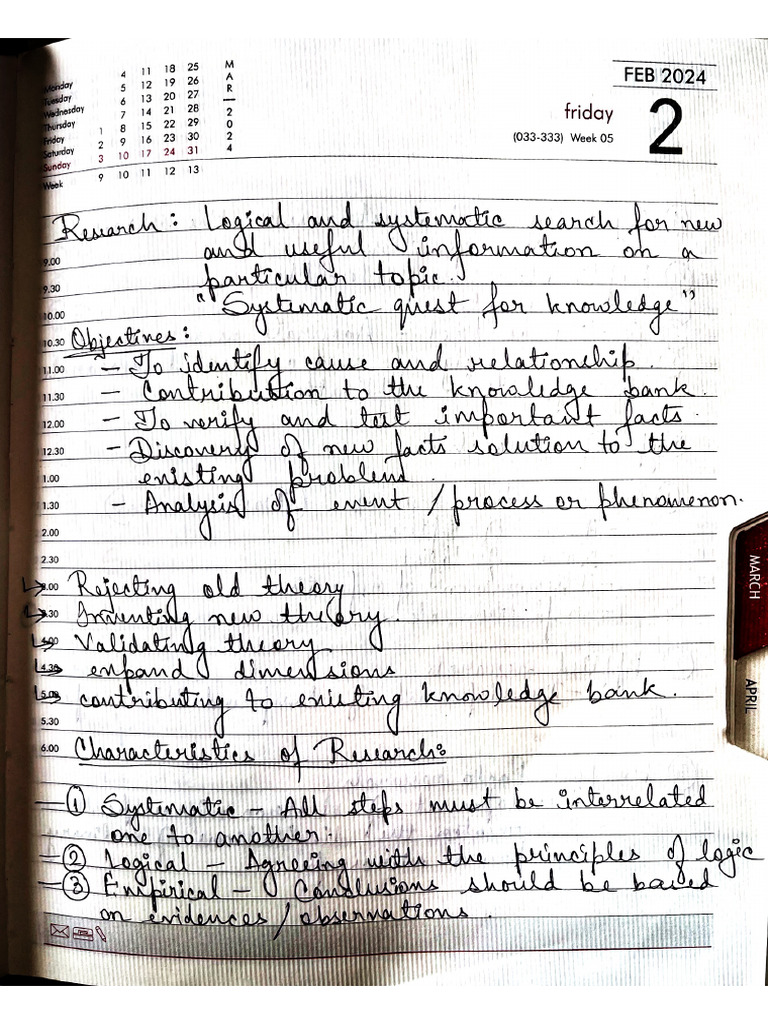 Monday 4 11 18 25
Tuesday 5 12 19 26
Wednesday 6 13 20 27
Thursday 7 14 21 28
Friday 1 8 15 22 29
Saturday 2 9 16 23 30
Sunday 3 10 17 24 31
Week 9 10 11 12 13
MAR 2024
FEB 2024
friday 2
(033-333) Week 05
Research: Logical and systematic search for new
9.00 and useful information on a
9.30 particular topic.
10.00 "Systematic quest for knowledge"
10.30 Objectives:
11.00 - To identify cause and relationship.
11.30 - Contribution to the knowledge bank.
12.00 - To verify and test important facts.
12.30 - Discovery of new facts solution to the
1.00 existing problem.
1.30 - Analysis of event / process or phenomenon.
2.00
2.30
3.00 ↳ Rejecting old theory
3.30 ↳ Inventing new theory.
4.00 ↳ Validating theory
4.30 ↳ expand dimensions
5.00 ↳ contributing to existing knowledge bank.
5.30
6.00 Characteristics of Research:
- ① Systematic - All steps must be interrelated
one to another.
- ② Logical - Agreeing with the principles of logic
- ③ Empirical - Conclusions should be based
on evidences / observations.
MARCH
APRIL